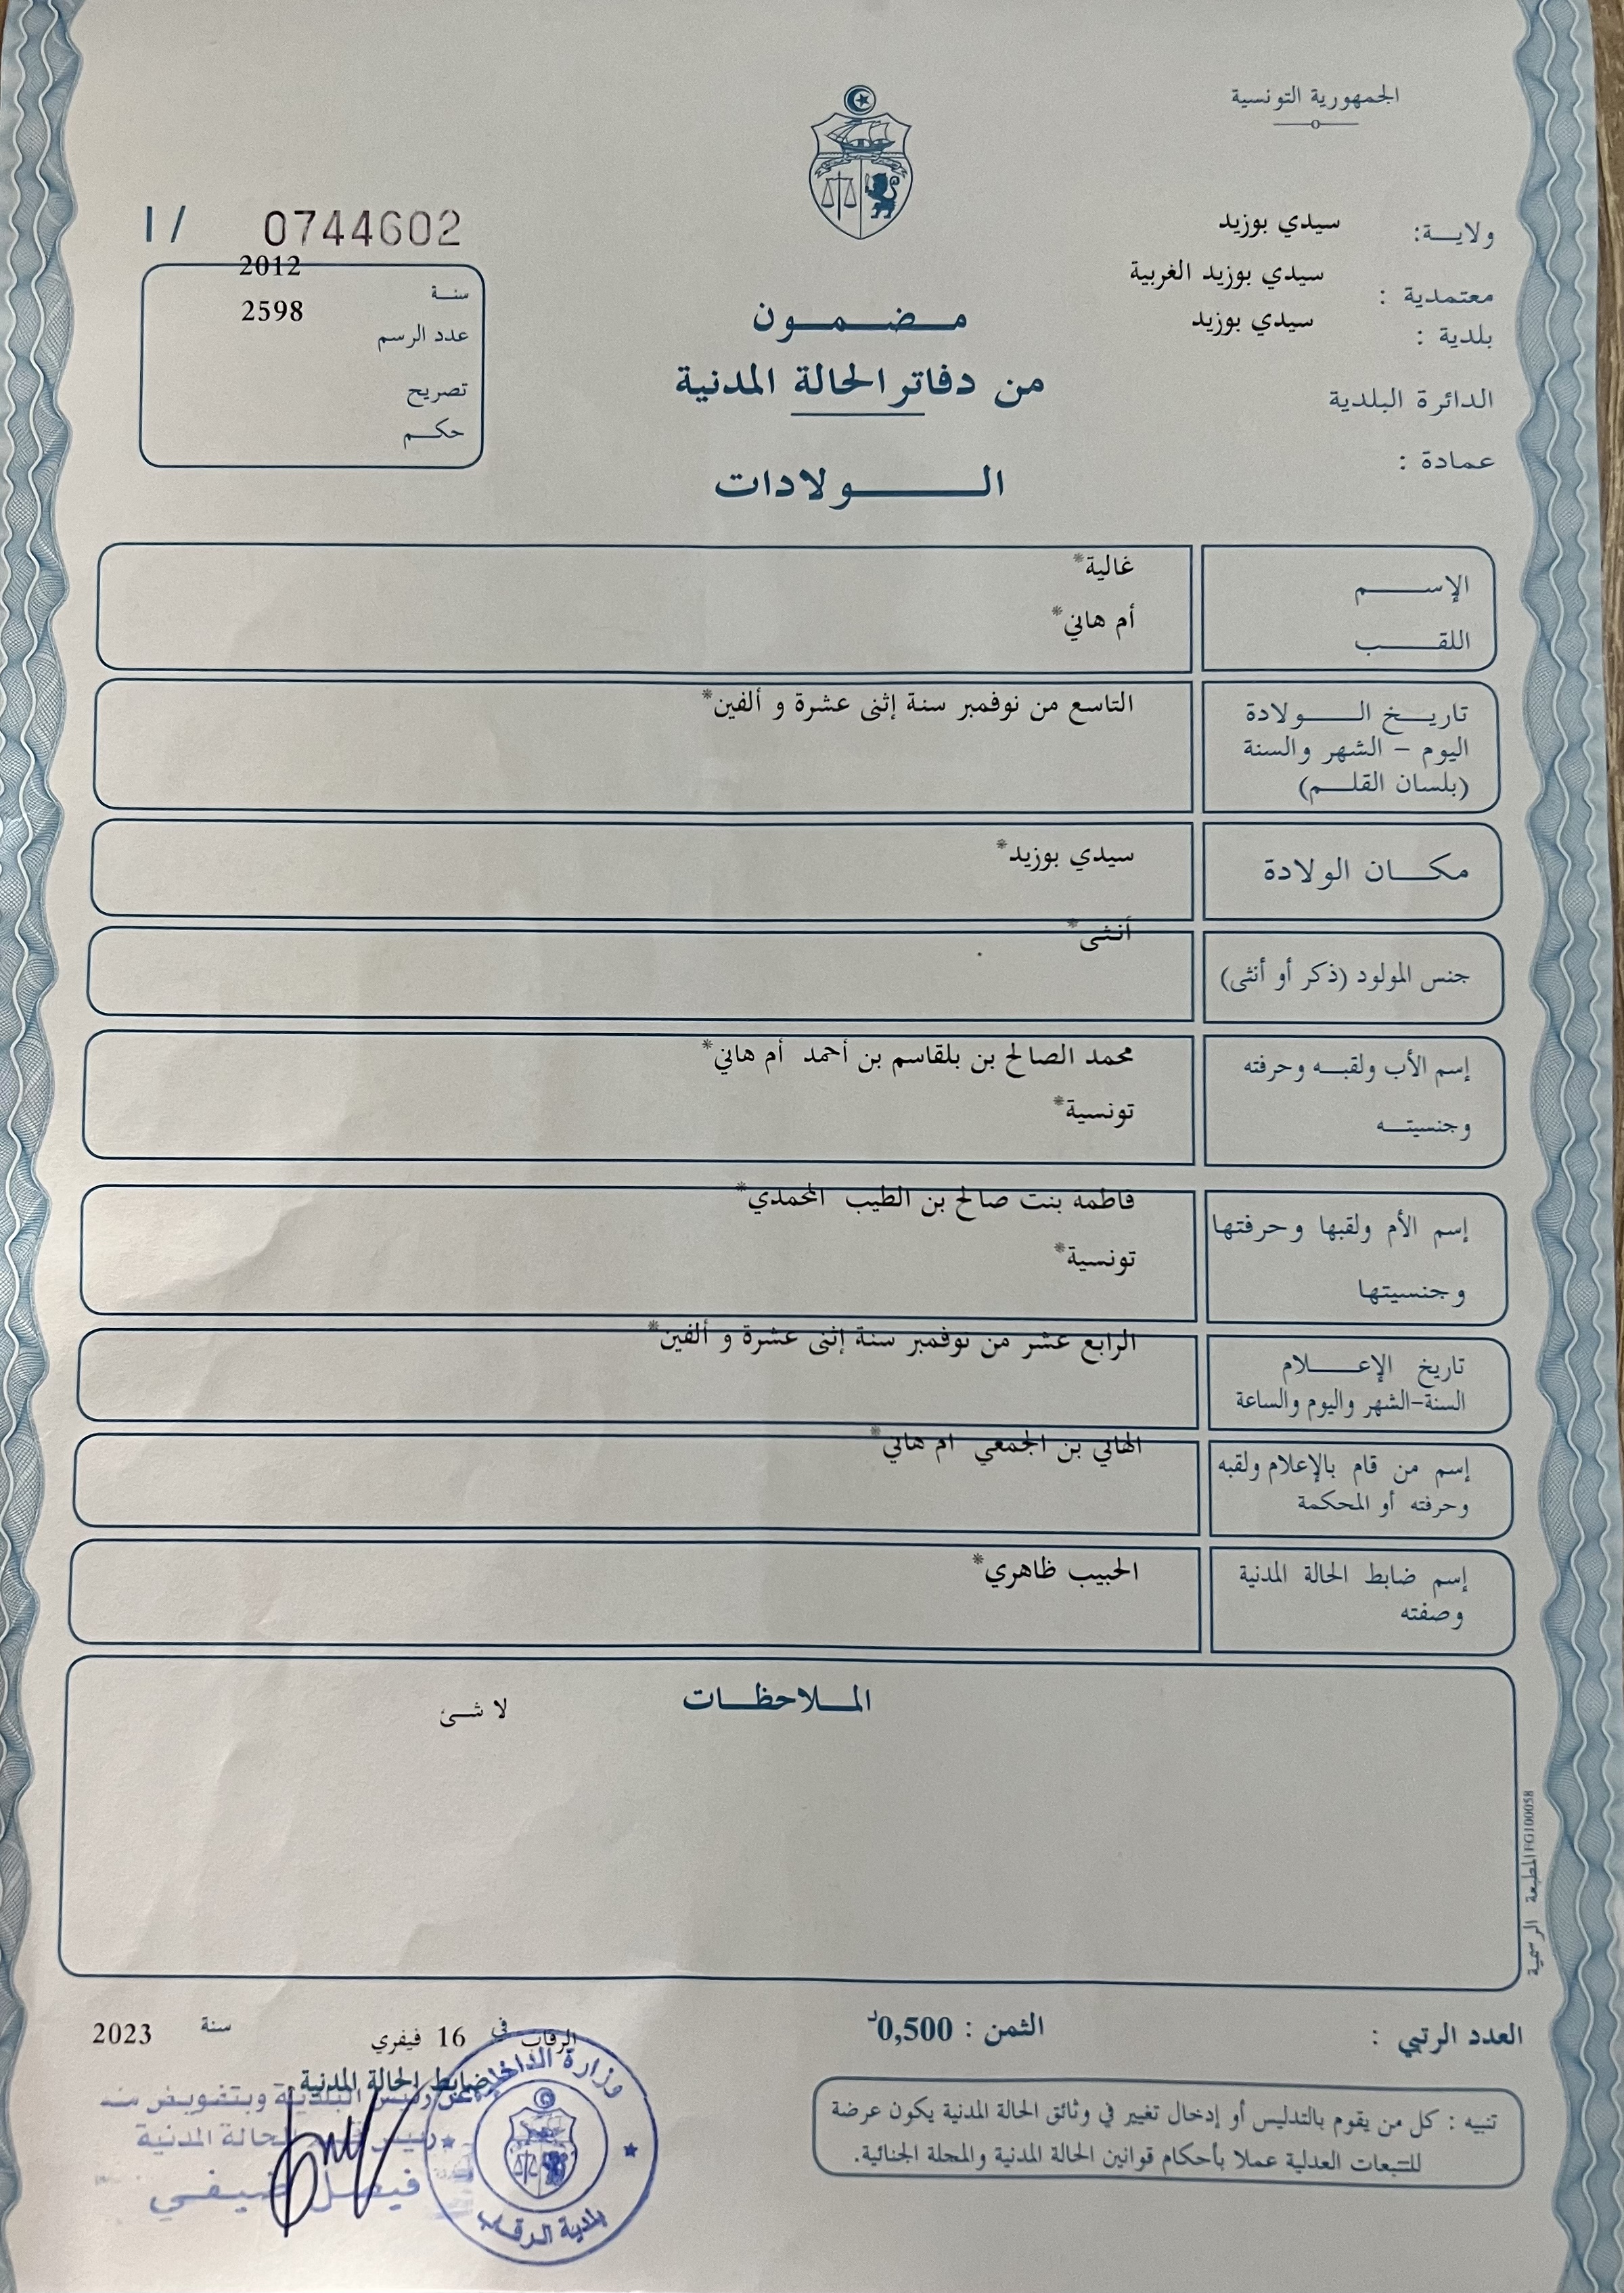 الجمهورية التونسية
ولايـــة: سيدي بوزيد
معتمدية : سيدي بوزيد الغربية
بلدية : سيدي بوزيد
الدائرة البلدية
عمادة :
مـــضـــمـــون
من دفاتر الحالة المدنية
الـــــولادات
I / 0744602
سنـة 2012
عدد الرسم 2598
تصريح
حكـــم
الإســـــم غالية*
اللقـــــب أم هاني*
تاريـــخ الـــــولادة التاسع من نوفمبر سنة إثنى عشرة و ألفين*
اليوم - الشهر والسنة
(بلسان القلـــم)
مكــــان الولادة سيدي بوزيد*
جنس المولود (ذكر أو أنثى) أنثى*
إسم الأب ولقبـــه وحرفته محمد الصالح بن بلقاسم بن أحمد أم هاني*
وجنسيتـــه تونسية*
إسم الأم ولقبها وحرفتها فاطمة بنت صالح بن الطيب المحمدي*
وجنسيتها تونسية*
تاريخ الإعـــــلام الرابع عشر من نوفمبر سنة إثنى عشرة و ألفين*
السنة-الشهر واليوم والساعة
إسم من قام بالإعلام ولقبه الهاني بن الجمعي ام هاني*
وحرفته أو المحكمة
إسم ضابط الحالة المدنية الحبيب ظاهري*
وصفته
المـــلاحظـــات
لا شئ
المطبعة الرسمية FG100058
العدد الرتبي :
الثمن : 0,500د
الرقاب في 16 فيفري سنة 2023
ضابط الحالة المدنية
عن رئيس البلدية وبتفويض منه
رئيس الحالة المدنية
فيصل ضيفي
وزارة الداخلية
بلدية الرقاب
تنبيه : كل من يقوم بالتدليس أو إدخال تغيير في وثائق الحالة المدنية يكون عرضة
للتتبعات العدلية عملا بأحكام قوانين الحالة المدنية والمجلة الجنائية.